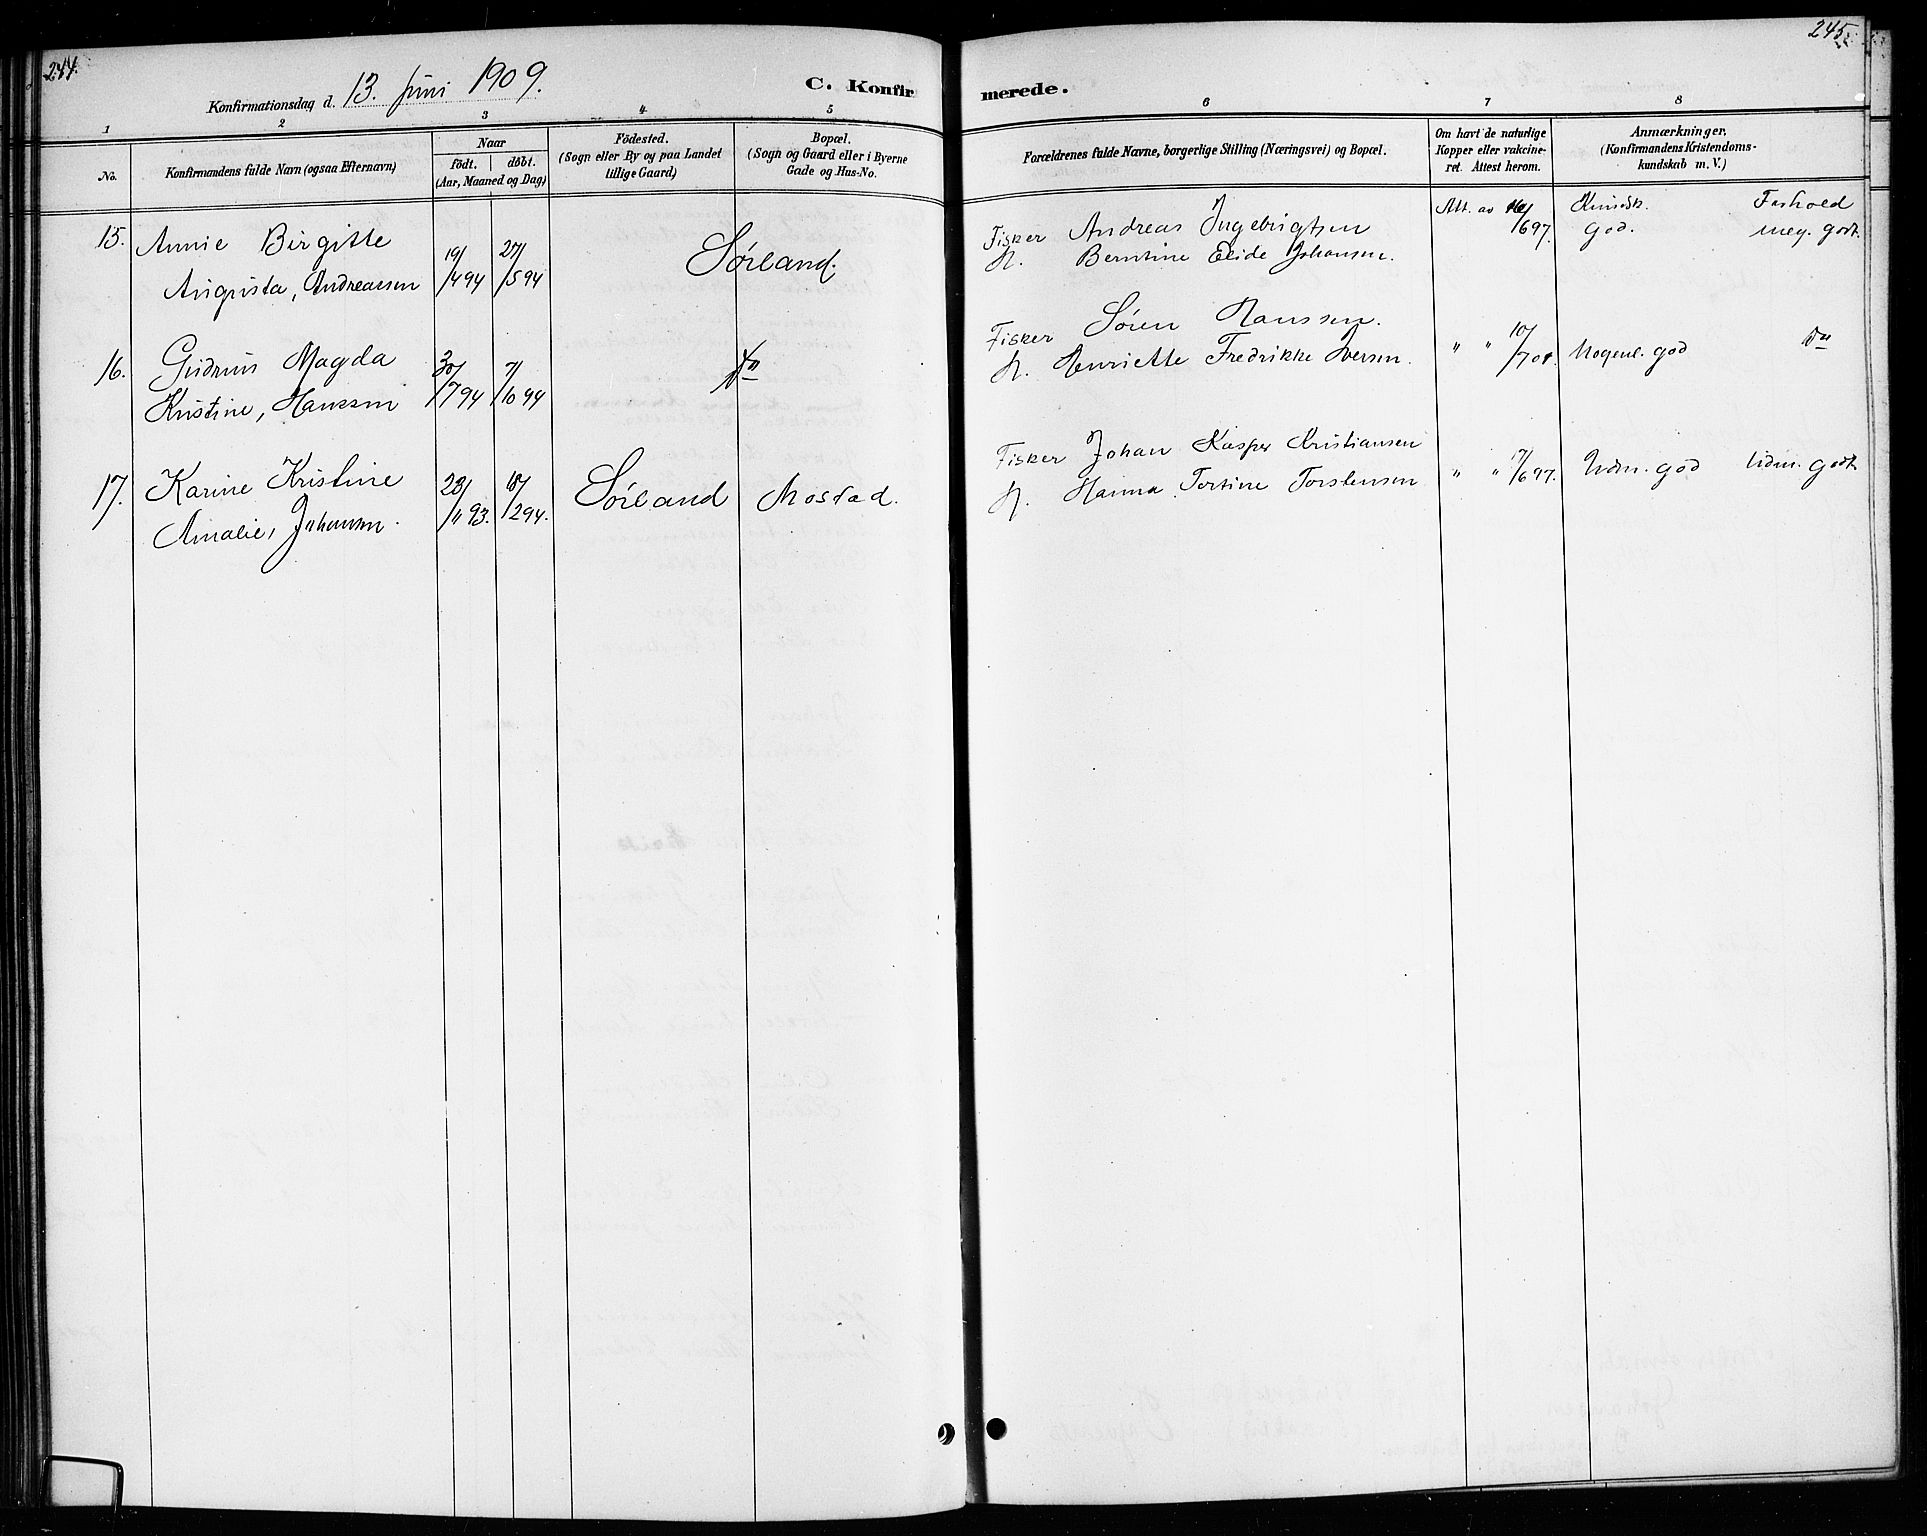 244.
245
Konfirmationsdag d. 13. Juni 1909.
C. Konfirmerede.
1 2 3 4 5 6 7 8
No.
Konfirmandens fulde Navn (ogsaa Efternavn)
Naar
födt. döbt.
(Aar, Maaned og Dag)
Födested.
(Sogn eller By og paa Landet
tillige Gaard)
Bopæl.
(Sogn og Gaard eller i Byerne
Gade og Hus-No.
Forældrenes fulde Navne, borgerlige Stilling (Næringsvei) og Bopæl.
Om havt de naturlige
Kopper eller vakcine-
ret. Attest herom.
Anmærkninger.
(Konfirmandens Kristendoms-
kundskab m. V.)
15. Annie Birgitte
Augusta, Andreassen
19/494 27/594
Sørland.
Fisker Andreas Ingebrigtsen
H. Berntine Elide Johansen.
Att. av /697.
Kundsk. Forhold
god. meg. godt.
16. Gudrun Magda
Kristine, Hanssen
30/794 7/1094
do
Fisker Søren Hanssen.
H. Henriette Fredrikke Iversen.
" " 10/701.
Nogenl. god do
17. Karine Kristine
Amalie, Johansen.
23/1193. 18/294.
Sørland Mostad.
Fisker Johan Kasper Kristiansen
H. Hanna Tortine Torstensen
" " 17/697.
Udm. god Udm. godt